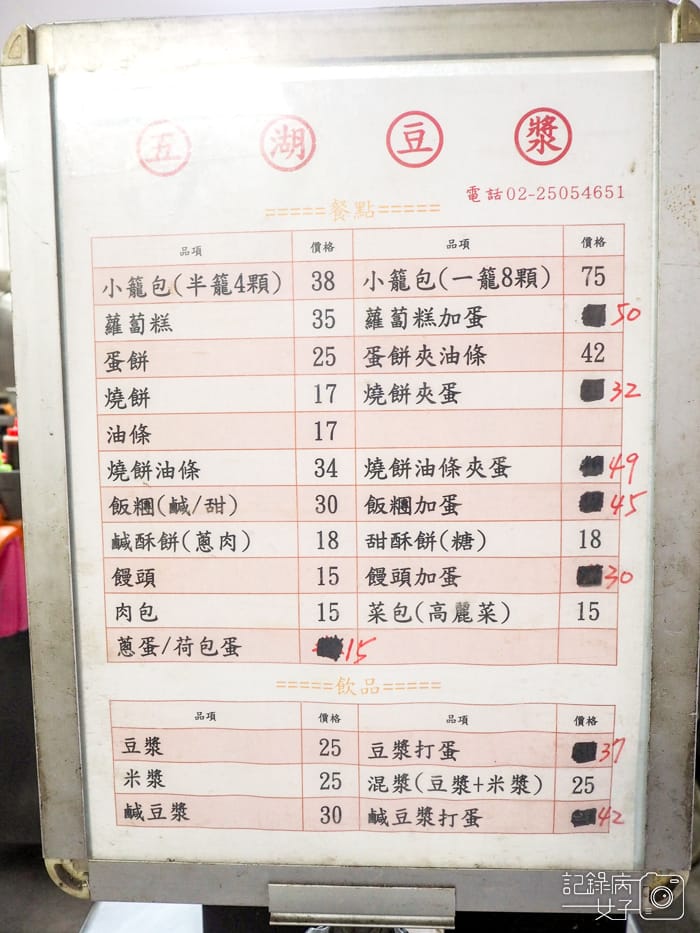 五 湖 豆 漿
電話02-25054651
=====餐點=====
品項 價格 品項 價格
小籠包(半籠4顆) 38 小籠包(一籠8顆) 75
蘿蔔糕 35 蘿蔔糕加蛋 50
蛋餅 25 蛋餅夾油條 42
燒餅 17 燒餅夾蛋 32
油條 17
燒餅油條 34 燒餅油條夾蛋 49
飯糰(鹹/甜) 30 飯糰加蛋 45
鹹酥餅(蔥肉) 18 甜酥餅(糖) 18
饅頭 15 饅頭加蛋 30
肉包 15 菜包(高麗菜) 15
蔥蛋/荷包蛋 15
=====飲品=====
品項 價格 品項 價格
豆漿 25 豆漿打蛋 37
米漿 25 混漿(豆漿+米漿) 25
鹹豆漿 30 鹹豆漿打蛋 42
記錄病
女子